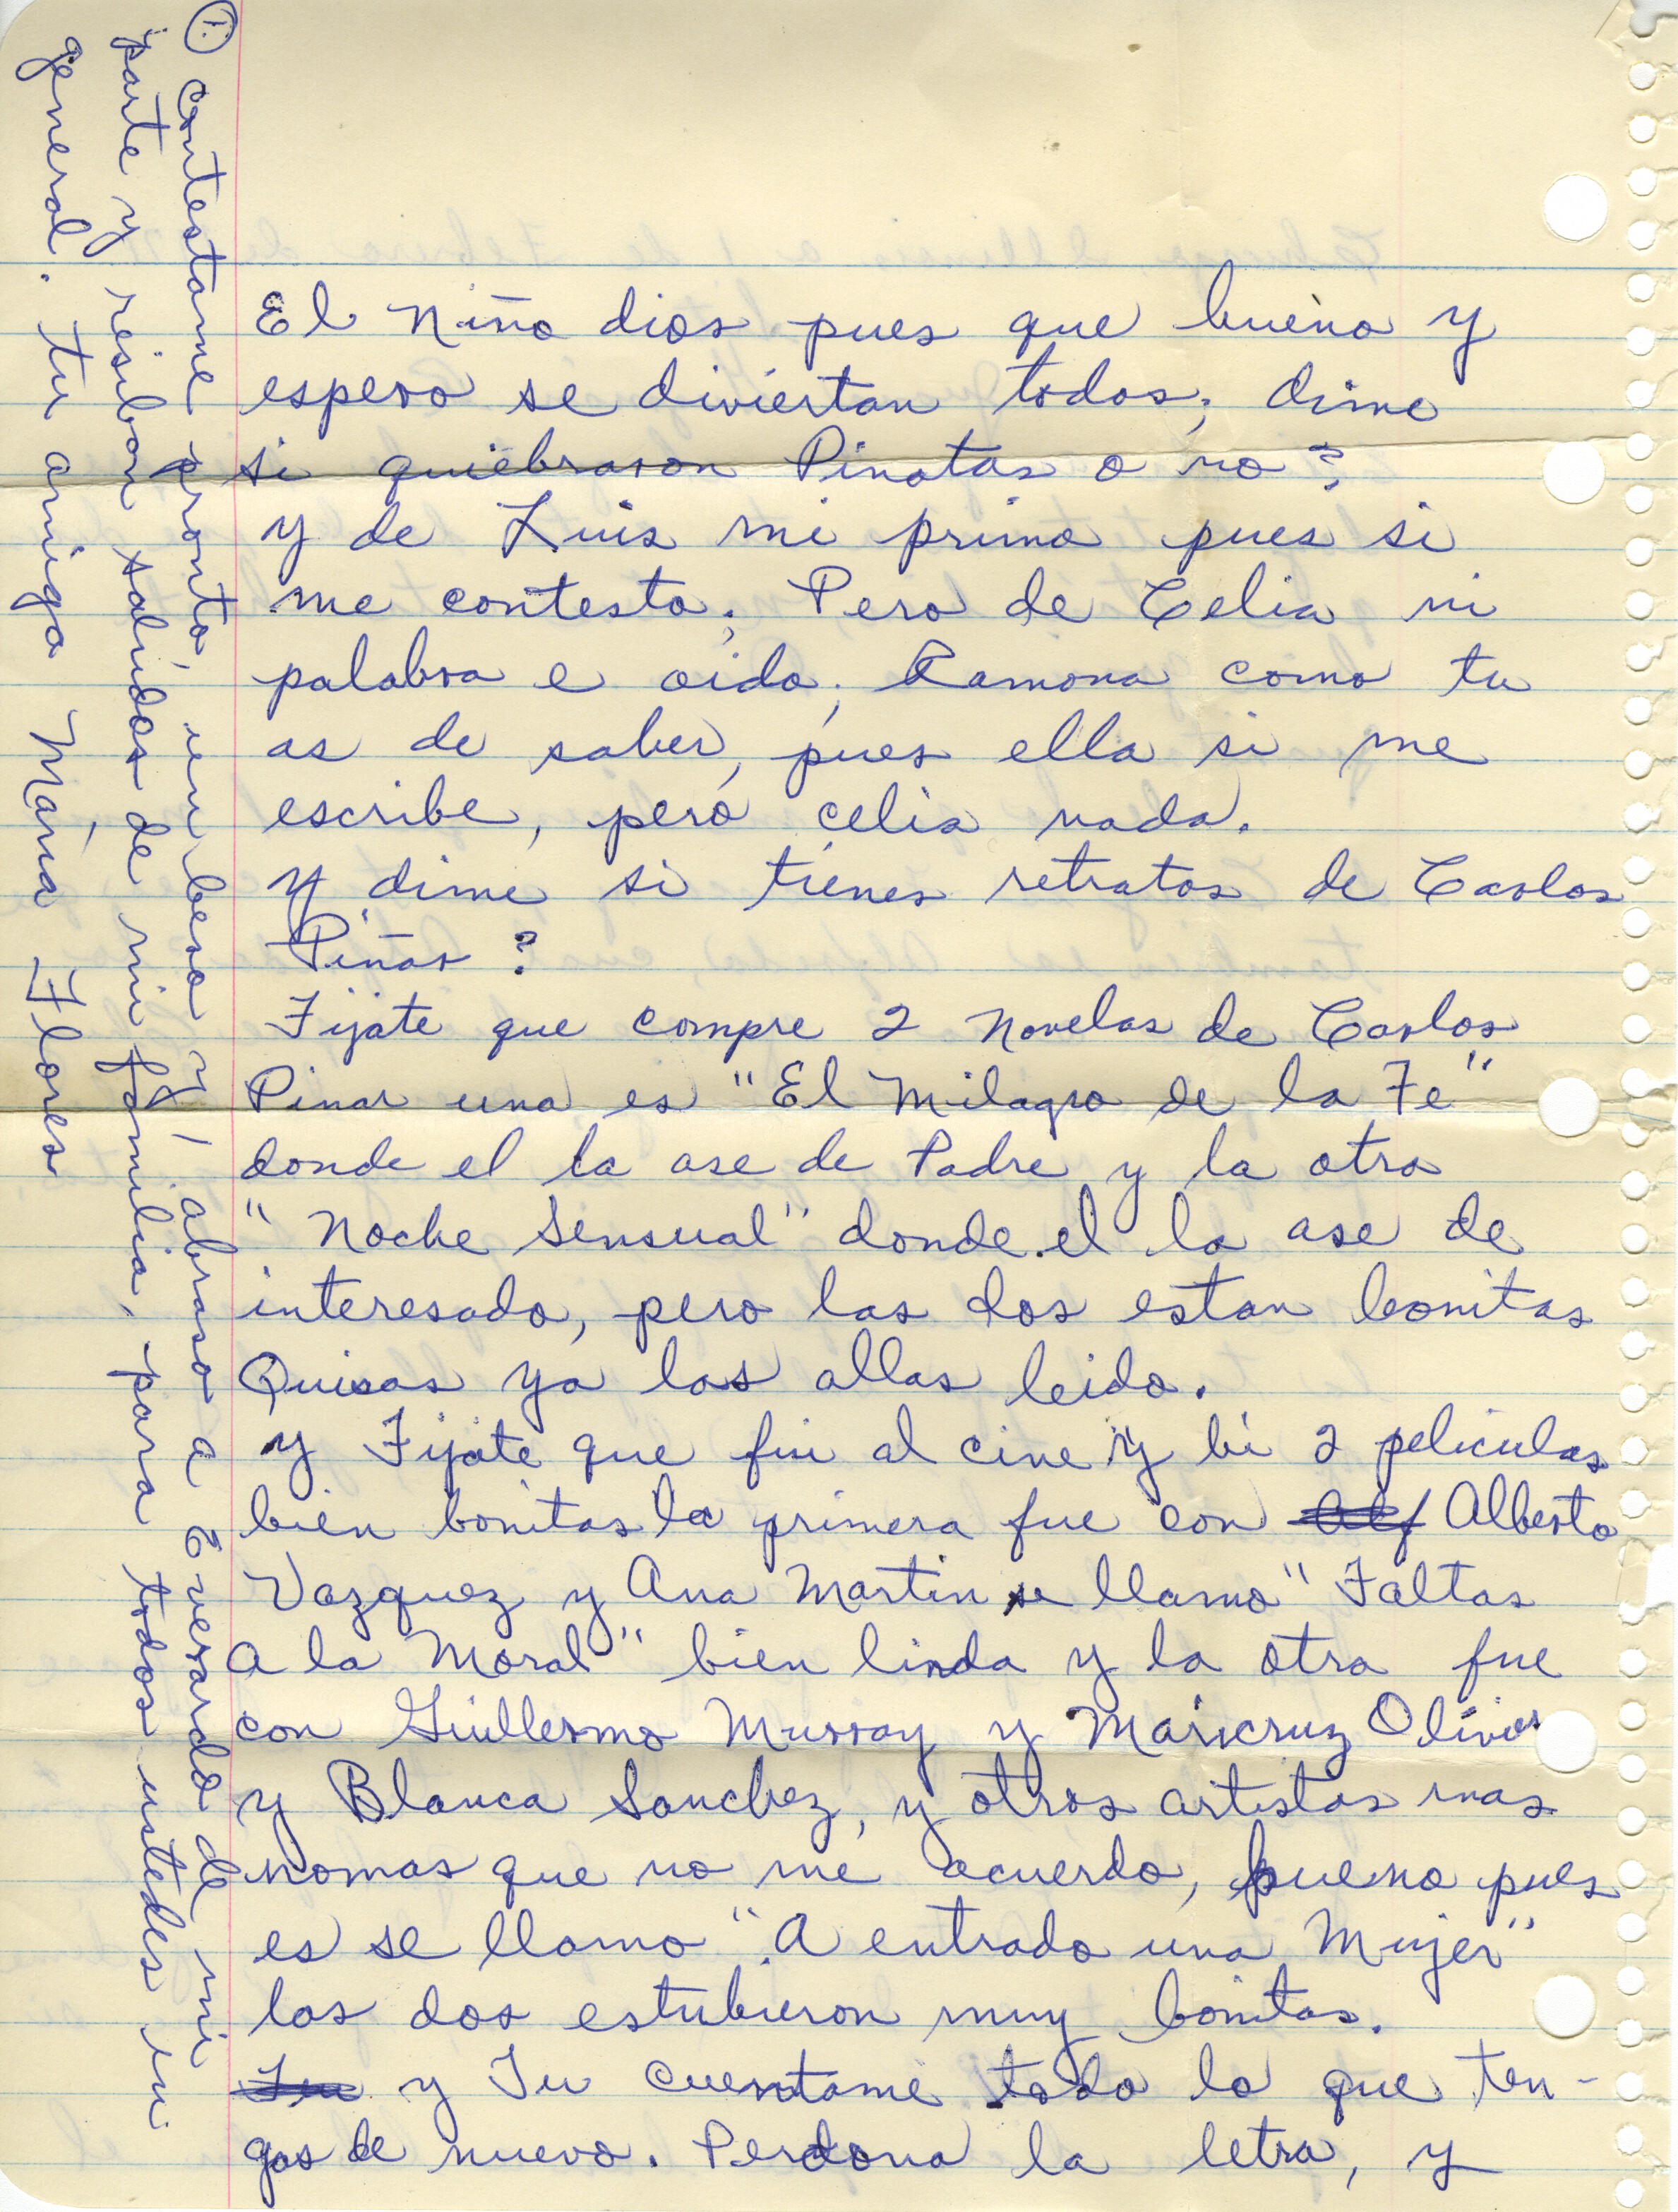 El Niño dios pues que bueno y
espero se diviertan todos; dime
si quiebraron Pinatas o no?
y de Luis mi primo pues si
me contesto; Pero de Celia ni
palabra e oido; Ramona como tu
as de saber, pues ella si me
escribe, pero celia nada.
y dime si tienes retratos de Carlos
Piñar ?
Fijate que compre 2 novelas de Carlos
Pinar una es "El Milagro de la Fe"
donde el la ase de Padre y la otra
"Noche Sensual" donde el la ase de
interesado, pero las dos estan bonitas
Quisas ya las allas leido.
y Fijate que fui al cine y bi 2 peliculas
bien bonitas la primera fue con Alf Alberto
Vazquez y Ana Martin se llamo "Faltas
A la Moral" bien linda y la otra fue
con Guillermo Murray y Maricruz Olivier
y Blanca Sanchez, y otros artistas mas
nomas que no me acuerdo, bueno pues
es se llamo "A entrado una Mujer"
las dos estubieron muy bonitas.
Tu y Tu cuentame todo lo que ten-
gas de nuevo. Perdona la letra, y
① contestame pronto, un beso y/ abraso a Everardo de mi
parte y resiban saludos de mi familia, para todos ustedes en
general. tu amiga Maria Flores